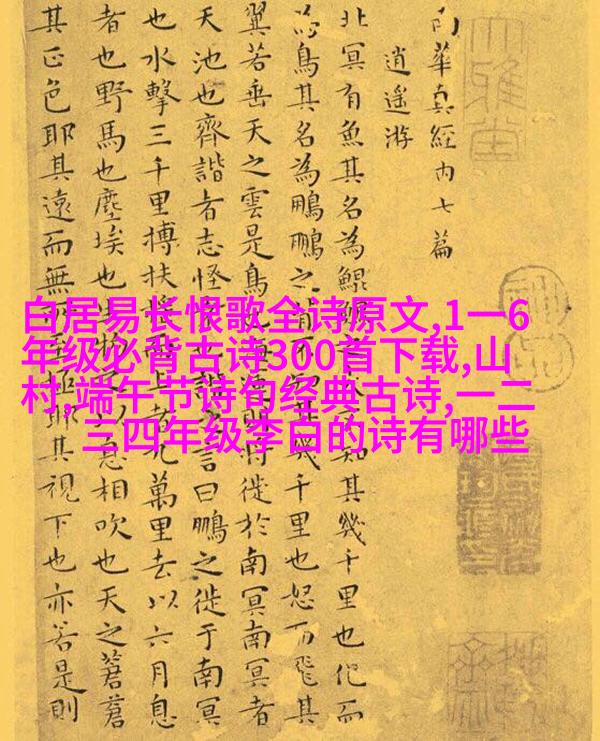 南華真經内七篇
逍遥游
北冥有魚其名為鯤 知其幾千里也化而
為鳥其名為鵬鵬之背不 其幾千里也怒而飛其
翼若垂天之雲是鳥也海 將徙於南冥南冥者
天池也齊諧者志怪 諧之言曰鵬之徙于南冥
也水擊三千里搏扶 上者九萬里去以六月息
者也野馬也塵埃也生物 以息相吹也天之蒼蒼
其正色耶其遠而無所至極耶其視下也亦若是則
白居易长恨歌全诗原文,1一6
年级必背古诗300首下载,山
村,端午节诗句经典古诗,一二
三四年级李白的诗有哪些